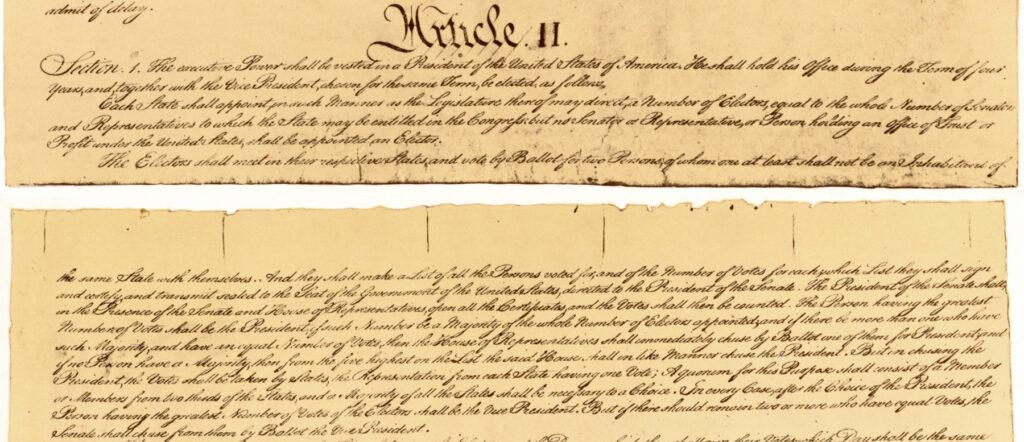 admit of delay.
Article. II.
Section. 1. The executive Power shall be vested in a President of the United States of America. He shall hold his Office during the Term of four
Years, and, together with the Vice President, chosen for the same Term, be elected, as follows,
Each State shall appoint, in such Manner as the Legislature thereof may direct, a Number of Electors, equal to the whole Number of Senators
and Representatives to which the State may be entitled in the Congress: but no Senator or Representative, or Person holding an Office of Trust or
Profit under the United States, shall be appointed an Elector.
The Electors shall meet in their respective States, and vote by Ballot for two Persons, of whom one at least shall not be an Inhabitant of
the same State with themselves. And they shall make a List of all the Persons voted for, and of the Number of Votes for each; which List they shall sign
and certify, and transmit sealed to the Seat of the Government of the United States, directed to the President of the Senate. The President of the Senate shall,
in the Presence of the Senate and House of Representatives, open all the Certificates, and the Votes shall then be counted. The Person having the greatest
Number of Votes shall be the President, if such Number be a Majority of the whole Number of Electors appointed; and if there be more than one who have
such Majority, and have an equal Number of Votes, then the House of Representatives shall immediately chuse by Ballot one of them for President; and
if no Person have a Majority, then from the five highest on the List the said House shall in like Manner chuse the President. But in chusing the
President, the Votes shall be taken by States, the Representation from each State having one Vote; A quorum for this Purpose shall consist of a Member
or Members from two thirds of the States, and a Majority of all the States shall be necessary to a Choice. In every Case, after the Choice of the President, the
Person having the greatest Number of Votes of the Electors shall be the Vice President. But if there should remain two or more who have equal Votes, the
Senate shall chuse from them by Ballot the Vice President.
which Day shall be the same